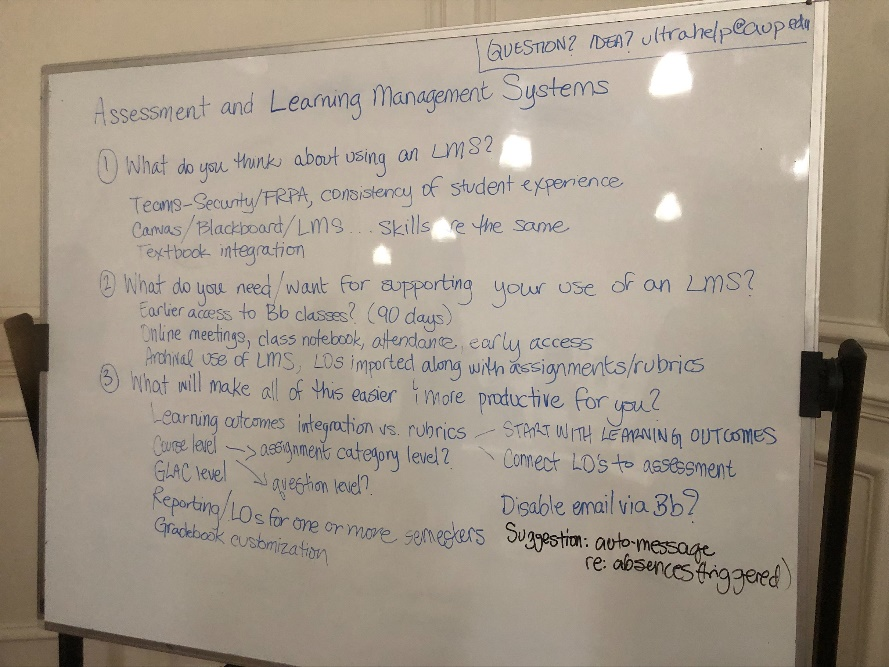 QUESTION? IDEA? ultrahelp@aup.edu
Assessment and Learning Management Systems
① What do you think about using an LMS?
Teams-Security/FRPA, consistency of student experience
Canvas/Blackboard/LMS... skills are the same
Textbook integration
② What do you need/want for supporting your use of an LMS?
Earlier access to Bb classes? (90 days)
Online meetings, class notebook, attendance, early access
Archival use of LMS, LOs imported along with assignments/rubrics
③ What will make all of this easier & more productive for you?
Learning outcomes integration vs. rubrics – START WITH LEARNING OUTCOMES
Course level → assignment category level? \ Connect LO's to assessment
GLAC level ↘ question level?
Reporting/LOs for one or more semesters
Gradebook customization
Disable email via Bb?
Suggestion: auto-message
re: absences (triggered)